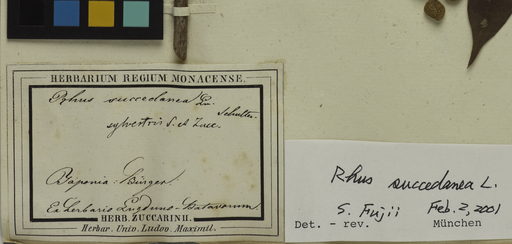 HERBARIUM REGIUM MONACENSE.
Rhus succedanea Lin.
Schultes.
sylvestris S. et Zucc.
Japonia. Bürger.
Ex herbario Lugduno-Batavorum.
HERB. ZUCCARINII.
Herbar. Univ. Ludov. Maximil.
Rhus succedanea L.
S. Fujii Feb. 2, 2001
Det. - rev. München